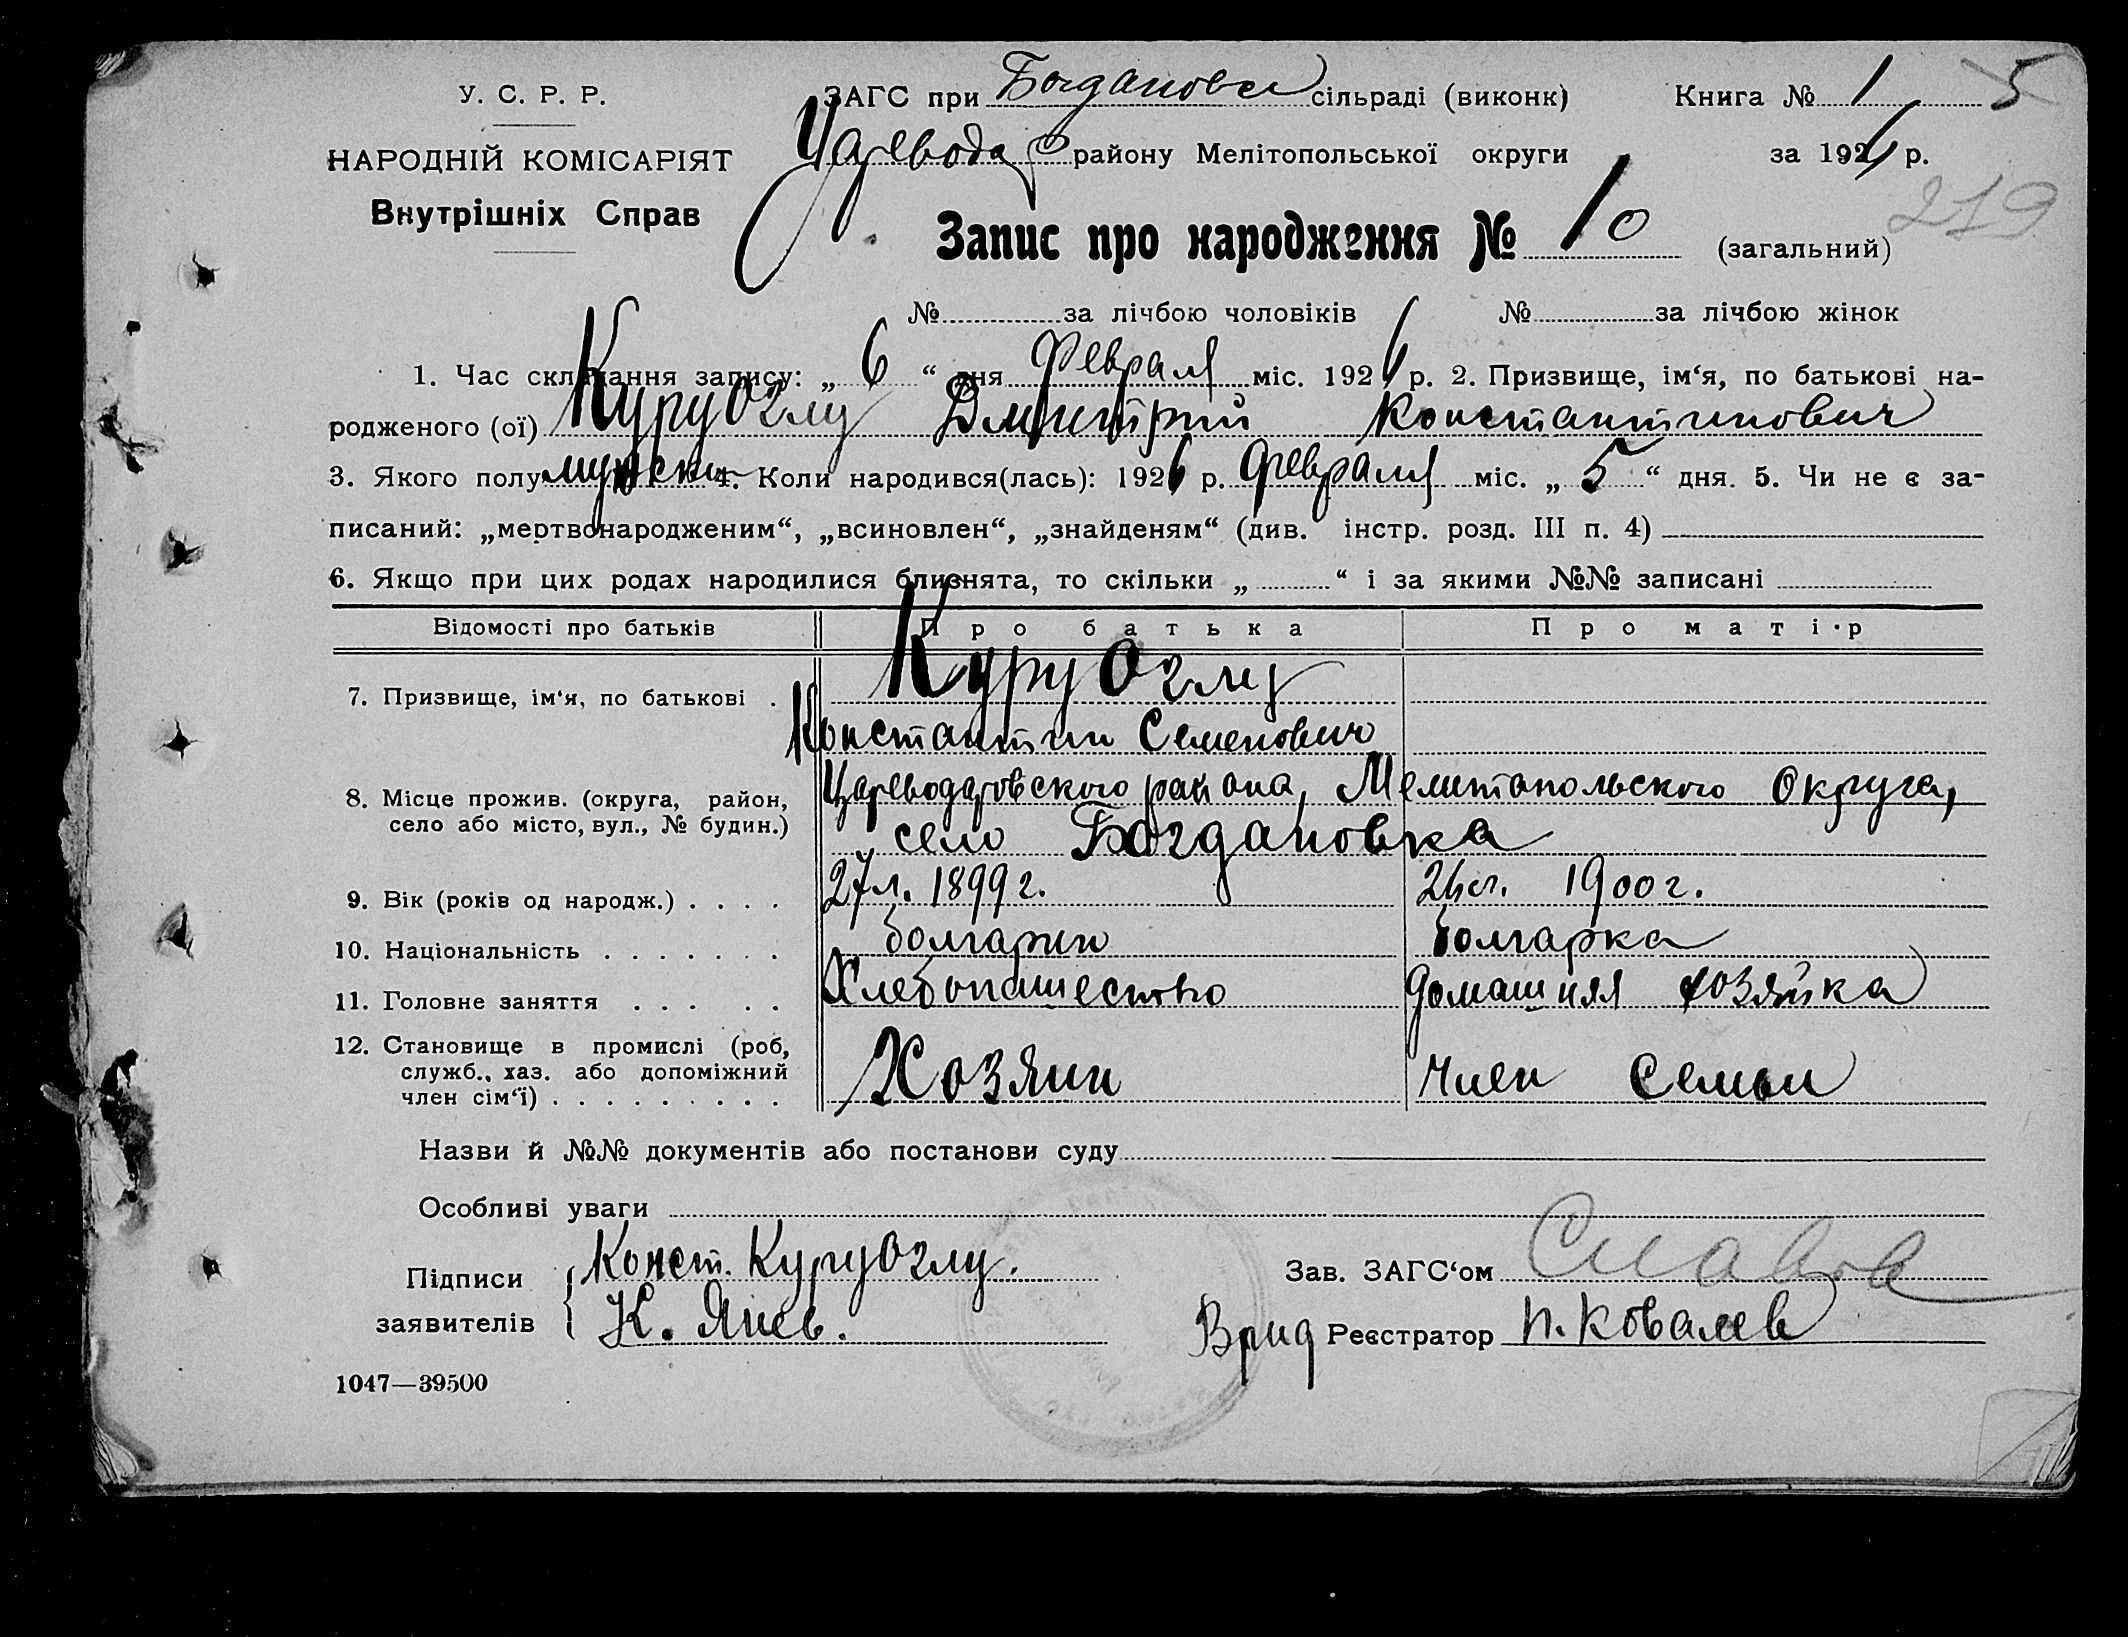 У. С. Р. Р.
НАРОДНІЙ КОМІСАРІЯТ
Внутрішніх Справ
ЗАГС при Богдановск сільраді (виконк) Книга № 1 5
Цареводар району Мелітопольської округи за 1926 р.
219
Запис про народження № 10 (загальний)
№ за лічбою чоловіків № за лічбою жінок
1. Час складання запису: „ 6 “ дня Февраля міс. 1926 р. 2. Призвище, ім‘я, по батькові на-
родженого (ої) Куру Оглу Дмитрий Константинович
3. Якого полу мужски 4. Коли народився(лась): 1926 р. Февраля міс. „ 5 “ дня. 5. Чи не є за-
писаний: „мертвонародженим“, „всиновлен“, „знайденям“ (див. інстр. розд. III п. 4)
6. Якщо при цих родах народилися близнята, то скільки „ “ і за якими №№ записані
Відомості про батьків Про батька Про матір
7. Призвище, ім‘я, по батькові . Куру Оглу
Константин Семенович
8. Місце прожив. (округа, район, Цареводаровского района, Мелитопольского Округа,
село або місто, вул., № будин.) село Богдановка
9. Вік (років од народж.) . . . . 27л. 1899г. 26л. 1900г.
10. Національність . . . . . . . болгарин болгарка
11. Головне заняття . . . . . Хлебопашество домашняя хозяйка
12. Становище в промислі (роб,
служб., хаз. або допоміжний Хозяин Член Семьи
член сім‘ї) . . . . . . . . .
Назви й №№ документів або постанови суду
Особливі уваги
Підписи Конст. КуруОглу. Зав. ЗАГС‘ом
заявителів К. Янев. Врид Реєстратор П. Ковалев
1047—39500